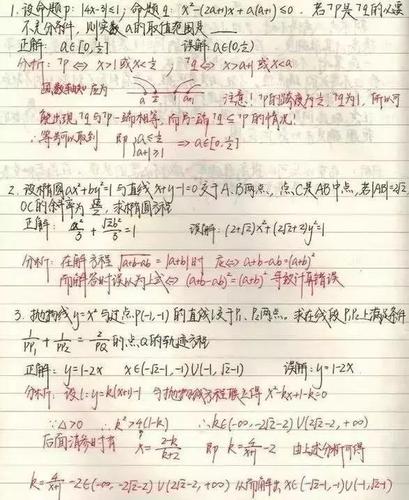 1. 设命题p: |4x-3|≤1; 命题q: x²-(2a+1)x+a(a+1)≤0. 若┐P是┐q的必要
不充分条件, 则实数a的取值范围是
正解: a∈[0,½] 误解 a∈(0,½)
分析: ┐P ⇔ x>1或x<½ ┐q ⇔ x>a+1或x<a
a ½ 1 a+1 注意! ┐P的跨度为½, ┐q为1, 所以可
能出现┐q与┐P一端相等, 而另一端┐q≤┐P的情况!
∴等号可以取到 即 { a≤½ a+1≥1 ⇒ a∈[0,½]
2. 设椭圆ax²+by²=1与直线x+y-1=0交于A.B两点, 点C是AB中点, 若|AB|=2√2
OC的斜率为√2/2, 求椭圆方程
正解: x²/3 + √2y²/3 =1 误解: (2+√2)x²+(2√2+2)y²=1
分析: 在解方程 √(a+b-ab) = |a+b| 时 应⇔ a+b-ab=(a+b)²
而解答时误认为上式⇔ (a+b-ab)²=(a+b)² 导致计算错误
3. 抛物线y=x²与过点P(-1,-1)的直线l交于P₁、P₂两点. 求在线段P₁P₂上满足条件
1/PP₁ + 1/PP₂ = 2/PQ 的点Q的轨迹方程
正解: y=1-2x x∈(-√2-1,-1)∪(-1,√2-1) 误解: y=1-2x
分析: 设l: y=k(x+1)-1 与抛物线方程联立得 x²-kx+1-k=0
∵△>0 ∴k²>4(1-k) ∴k∈(-∞,-2√2-2)∪(2√2-2,+∞)
后面消参时有 x=(2-k)/(k+2) 即 k=4/(x+1)-2 由上述分析可得
k=4/(x+1)-2∈(-∞,-2√2-2)∪(2√2-2,+∞) 从而解出x∈(-√2-1,-1)∪(-1,√2-1)